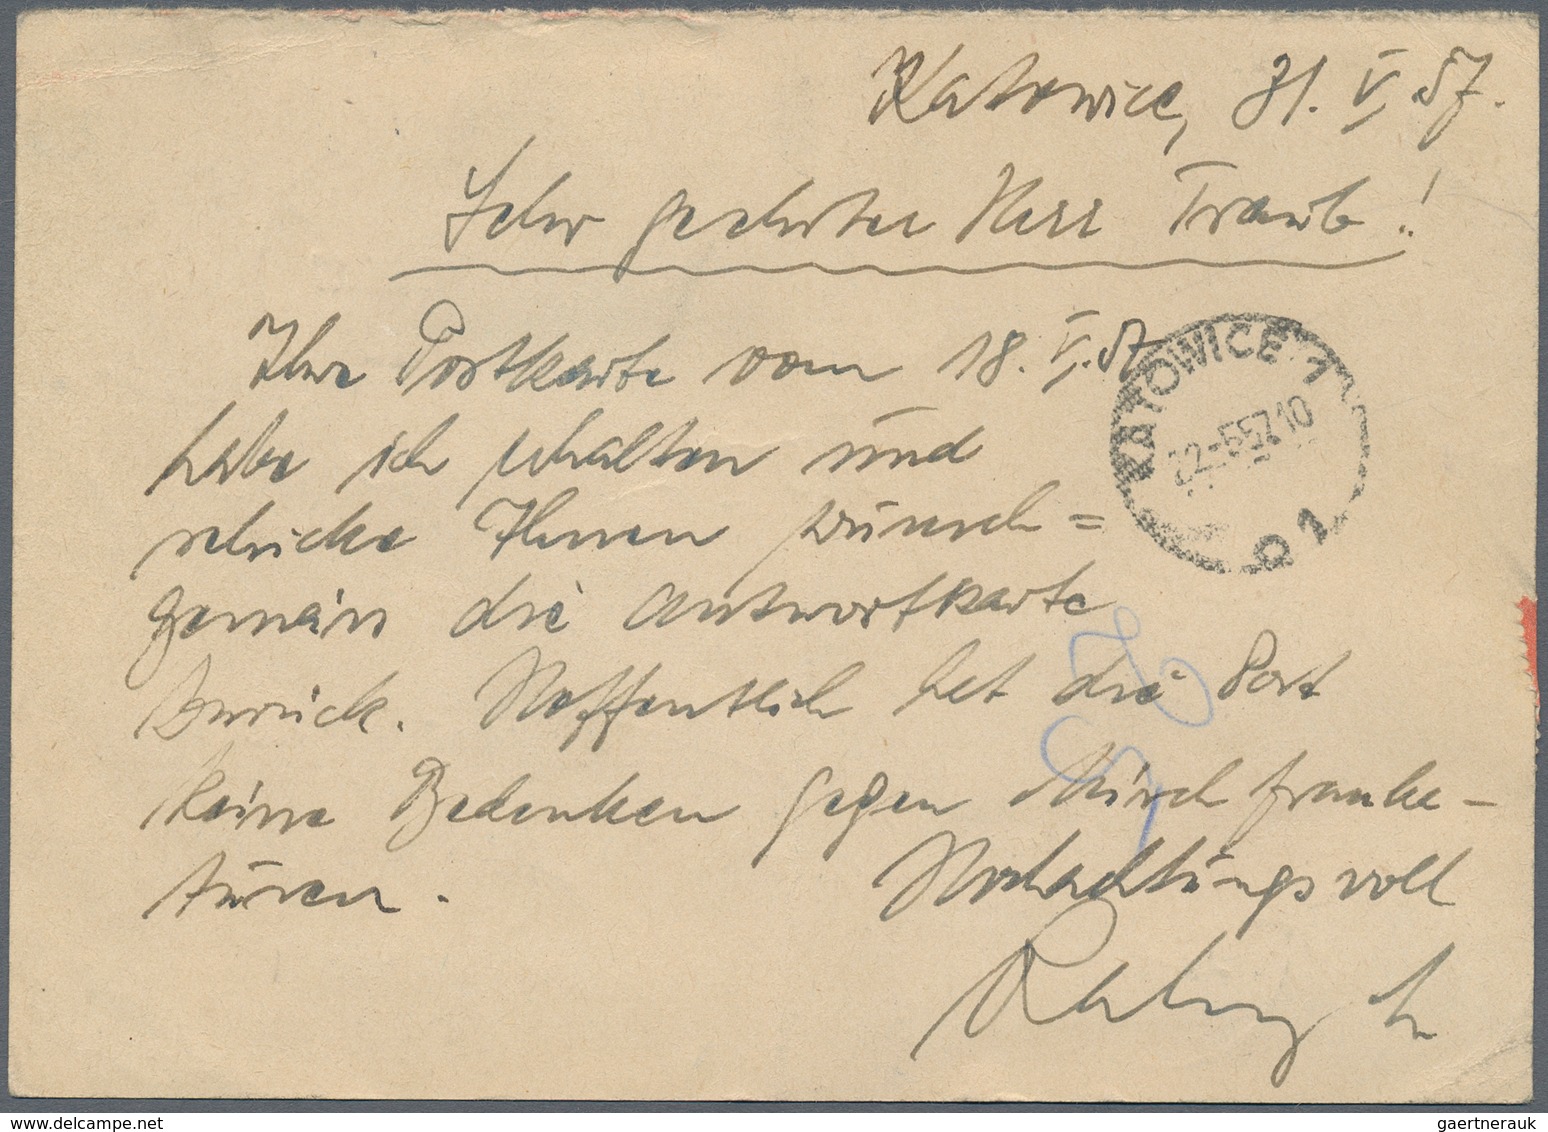 Katowice, 21. V. 57.
Sehr geehrter Herr Traub!
Ihre Postkarte vom 18. V. 57
habe ich erhalten und
schicke Ihnen wünsch=
gemäss die Antwortkarte
zurück. Hoffentlich hat die Post
keine Bedenken gegen Mischfranka-
turen.
Hochachtungsvoll
KATOWICE 1
22-5 57 10
www.delcampe.net
gaertnerauk